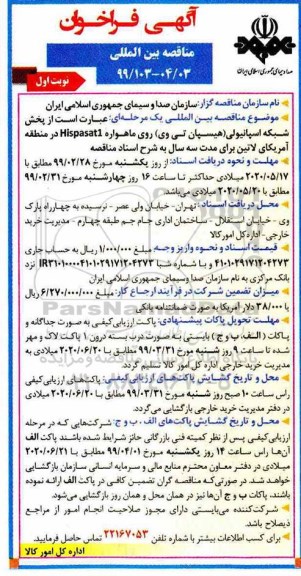 آگهی فراخوان
مناقصه بین المللی
۹۹/۱۰۳-۰۴/۰۳
نوبت اول
صدا و سیمای جمهوری اسلامی ایران
نام سازمان مناقصه گزار: سازمان صدا و سیمای جمهوری اسلامی ایران
موضوع مناقصه بین المللی یک مرحله‌ای: عبارت است از پخش
شبکه اسپانیولی (هیسپان تی وی) روی ماهواره Hispasat1 در منطقه
آمریکای لاتین برای مدت سه سال به شرح اسناد مناقصه
مهلت و نحوه دریافت اسناد: از روز یکشنبه مورخ ۹۹/۰۲/۲۸ مطابق با
۲۰۲۰/۰۵/۱۷ میلادی حداکثر تا ساعت ۱۶ روز چهارشنبه مورخ ۹۹/۰۲/۳۱
مطابق با ۲۰۲۰/۰۵/۲۰ میلادی می‌باشد.
محل دریافت اسناد: تهران- خیابان ولی عصر - نرسیده به چهارراه پارک
وی- خیابان استقلال - ساختمان اداری جام جم طبقه چهارم - مدیریت خرید
خارجی - اداره کل امور کالا
قیمت اسناد و نحوه واریز وجه: مبلغ ۱/۰۰۰/۰۰۰ ریال به حساب جاری
۴۱۰۱۰۲۹۱۷۱۲۰۴۲۷۳ و با شماره شبا نزد
بانک مرکزی به نام سازمان صدا و سیمای جمهوری اسلامی ایران
میزان تضمین شرکت در فرآیند ارجاع کار: مبلغ ۶/۲۷۰/۰۰۰/۰۰۰ ریال
یا ۳۸/۰۰۰ دلار آمریکا به صورت ضمانتنامه بانکی
مهلت تحویل پاکات پیشنهادی: پاکت ارزیابی کیفی به صورت جداگانه و
پاکات (الف، ب و ج) بایستی به صورت درب بسته درون ۱ پاکت لاک و مهر
شده تا ساعت ۹ روز شنبه مورخ ۹۹/۰۳/۳۱ مطابق با ۲۰۲۰/۰۶/۲۰ میلادی به
مدیریت خرید خارجی اداره کل امور کالا تسلیم گردد.
محل و تاریخ گشایش پاکت‌های ارزیابی کیفی: پاکت‌های ارزیابی کیفی
راس ساعت ۱۰ صبح روز شنبه مورخ ۹۹/۰۳/۳۱ مطابق با ۲۰۲۰/۰۶/۲۰ میلادی
در دفتر مدیریت خرید خارجی بازگشایی می‌گردد.
محل و تاریخ گشایش پاکت‌های الف، ب و ج: شرکت‌هایی که در مرحله
ارزیابی کیفی پس از نظر کمیته فنی بازرگانی حائز شرایط شده باشند پاکت الف
آن‌ها راس ساعت ۱۴ روز یکشنبه مورخ ۹۹/۰۴/۰۱ مطابق با ۲۰۲۰/۰۶/۲۱
میلادی در دفتر معاون محترم منابع مالی و سرمایه انسانی سازمان بازگشایی
خواهد شد. در صورتی‌که مناقصه گران تضمین کافی در پاکت الف ارائه نموده
باشند، پاکات ب و ج آن‌ها نیز در همان محل و همان روز بازگشایی می‌شود.
شرکت‌کننده می‌بایستی دارای مجوز صلاحیت انجام امور از مراجع
ذیصلاح باشد.
برای کسب اطلاعات بیشتر با شماره تلفن ۲۲۱۶۷۰۵۳ تماس حاصل فرمایید.
اداره کل امور کالا